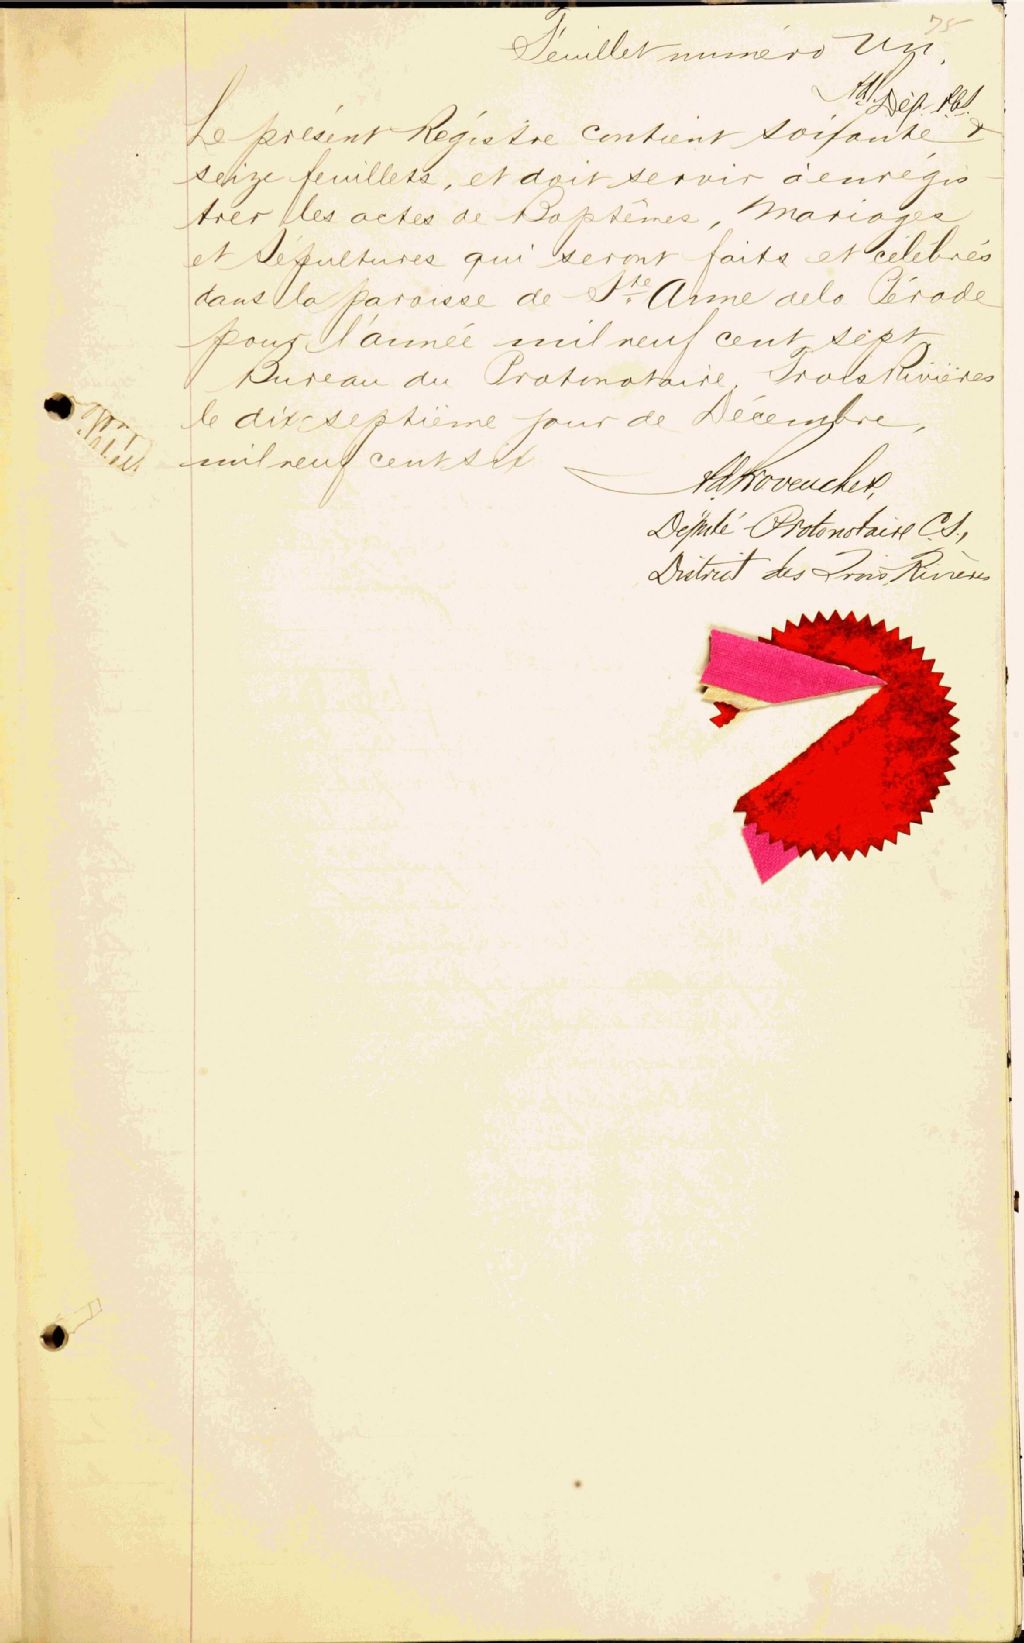 75
Feuillet numéro Un.
Dép. P.C.S.
Le présent Régistre contient soixante &
seize feuillets, et doit servir à enrégis-
trer les actes de Baptêmes, Mariages
et Sépultures qui seront faits et célébrés
dans la paroisse de Ste Anne de la Pérade
pour l'année mil neuf cent sept.
Bureau du Protonotaire, Trois Rivières
le dix-septième jour de Décembre,
mil neuf cent six
Ad Provencher,
Député Protonotaire C.S.,
District des Trois Rivières